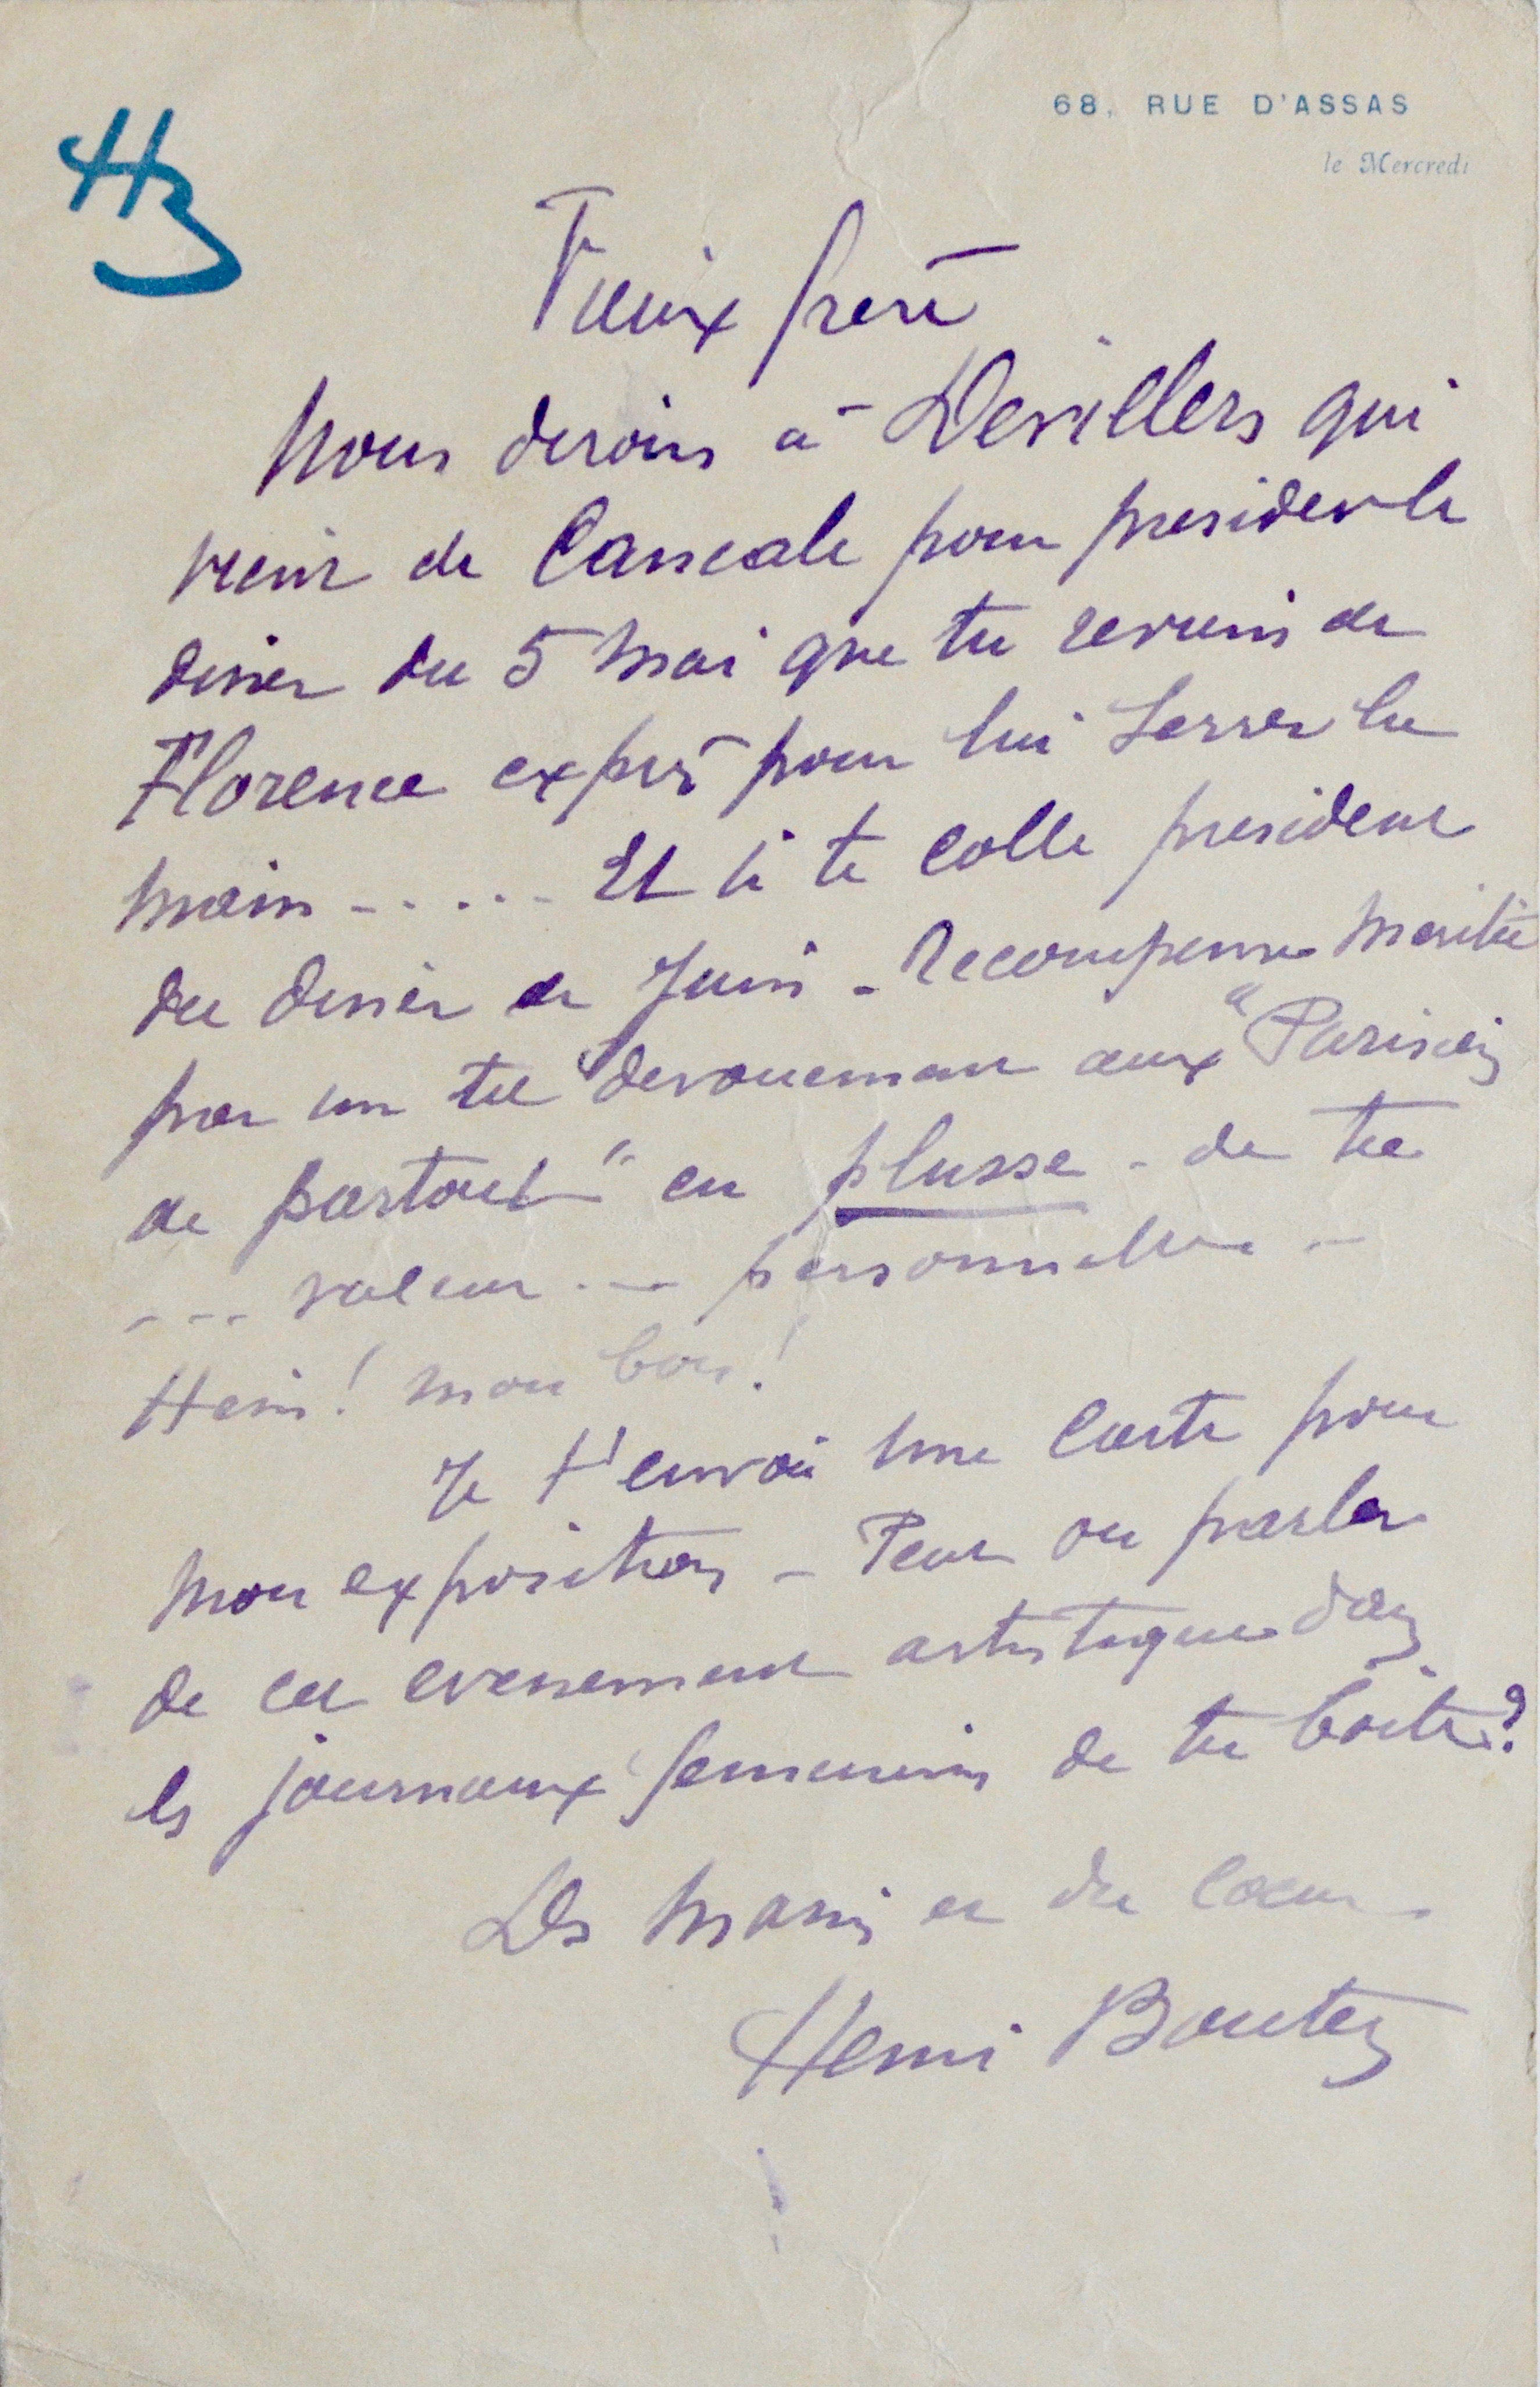 68, RUE D'ASSAS
le Mercredi
HB
Vieux frère
Nous dirons à Devillers qui
vient de Cancale pour presider le
diner du 5 Mai que tu reviens de
Florence exprès pour lui serrer la
main - . . . . - Et je te colle president
du diner de Juin - Recompense meritée
par un tel devouement aux "Parisiens
de partout" en plusse - de ta
- - - valeur . - personnelle -
Hein ! mon bon !
Je t'envoie une carte pour
mon exposition - Peut on parler
de cet evenement artistique dans
les journaux feminins de ta boîte ?
Des mains et du cœur
Henri Boutet